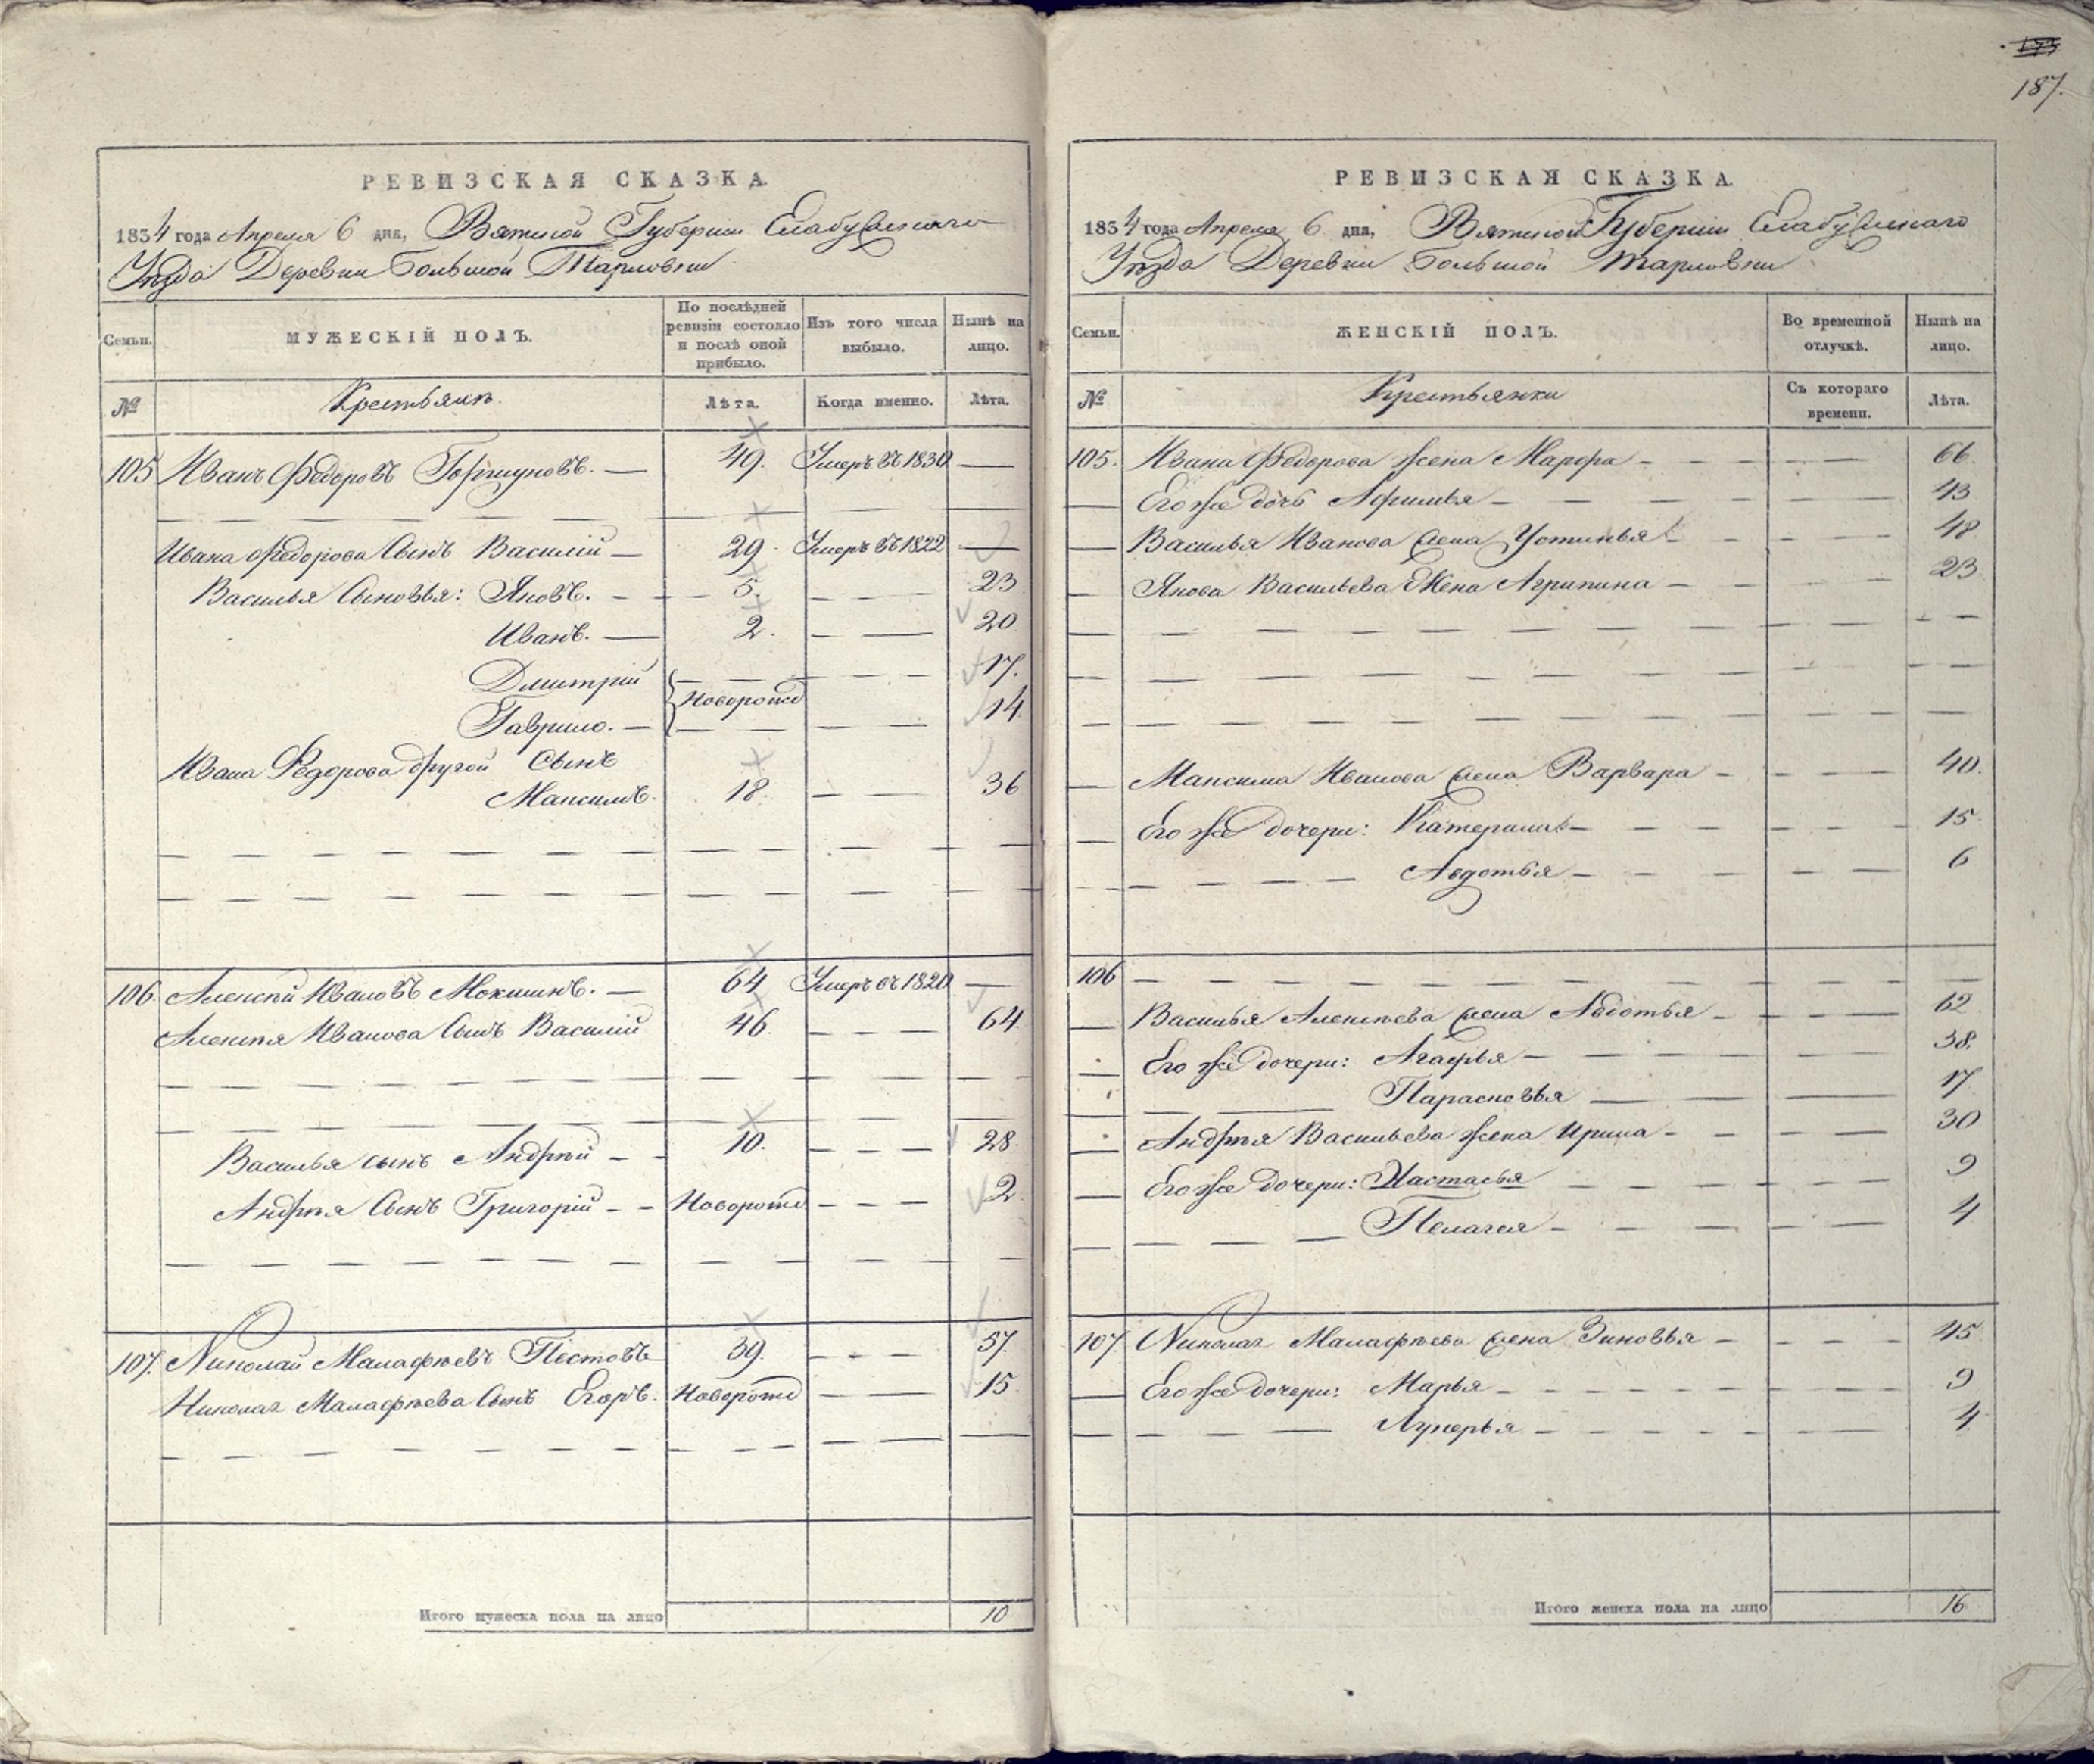 187.
РЕВИЗСКАЯ СКАЗКА.
1834 года Апреля 6 дня, Вятской Губернии Елабужскаго
Уѣзда Деревни Большой Тарловки
Семьи. МУЖЕСКІЙ ПОЛЪ. По послѣдней ревизіи состояло и послѣ оной прибыло. Изъ того числа выбыло. Нынѣ на лицо.
№ Крестьянъ. Лѣта. Когда именно. Лѣта.
105 Иванъ Федоровъ 49. Умеръ въ 1830
Ивана Федорова Сынъ Василій 29. Умеръ въ 1822
Василья Сыновья: Яковъ. 5. 23
Иванъ. 2. 20
Дмитрій 17.
Новорожд
Гаврило. 14
Ивана Федорова другой Сынъ
Максимъ. 18. 36
106. Алексѣй Ивановъ Мокшинъ. 64 Умеръ въ 1820
Алексѣя Иванова Сынъ Василій 46. 64
Василья сынъ Андрѣй 10. 28.
Андрѣя Сынъ Григорій Новорожд 2.
107. Николай Малафѣевъ Пестовъ 39. 57.
Николая Малафѣева Сынъ Егоръ. Новорожд 15
Итого мужеска пола на лицо 10
РЕВИЗСКАЯ СКАЗКА.
1834 года Апреля 6 дня, Вятской Губерніи Елабужскаго
Уѣзда Деревни Большой Тарловки
Семьи. ЖЕНСКІЙ ПОЛЪ. Во временной отлучкѣ. Нынѣ на лицо.
№ Крестьянки Съ котораго времени. Лѣта.
105. Ивана Федорова жена Марфа 66
Его же дочь Афимья 43
Василья Иванова жена Устинья 48
Якова Васильева Жена Агрипина 23
Максима Иванова жена Варвара 40.
Его же дочери: Катерина 15
Авдотья 6
106
Василья Алексѣева жена Авдотья 62
Его же дочери: Агафья 38.
Парасковья 17
Андрѣя Васильева жена Ирина 30
Его же дочери: Настасья 9
Пелагея 4
107. Николая Малафѣева жена Зиновья 45
Его же дочери: Марья 9
Лукерья 4
Итого женска пола на лицо 16